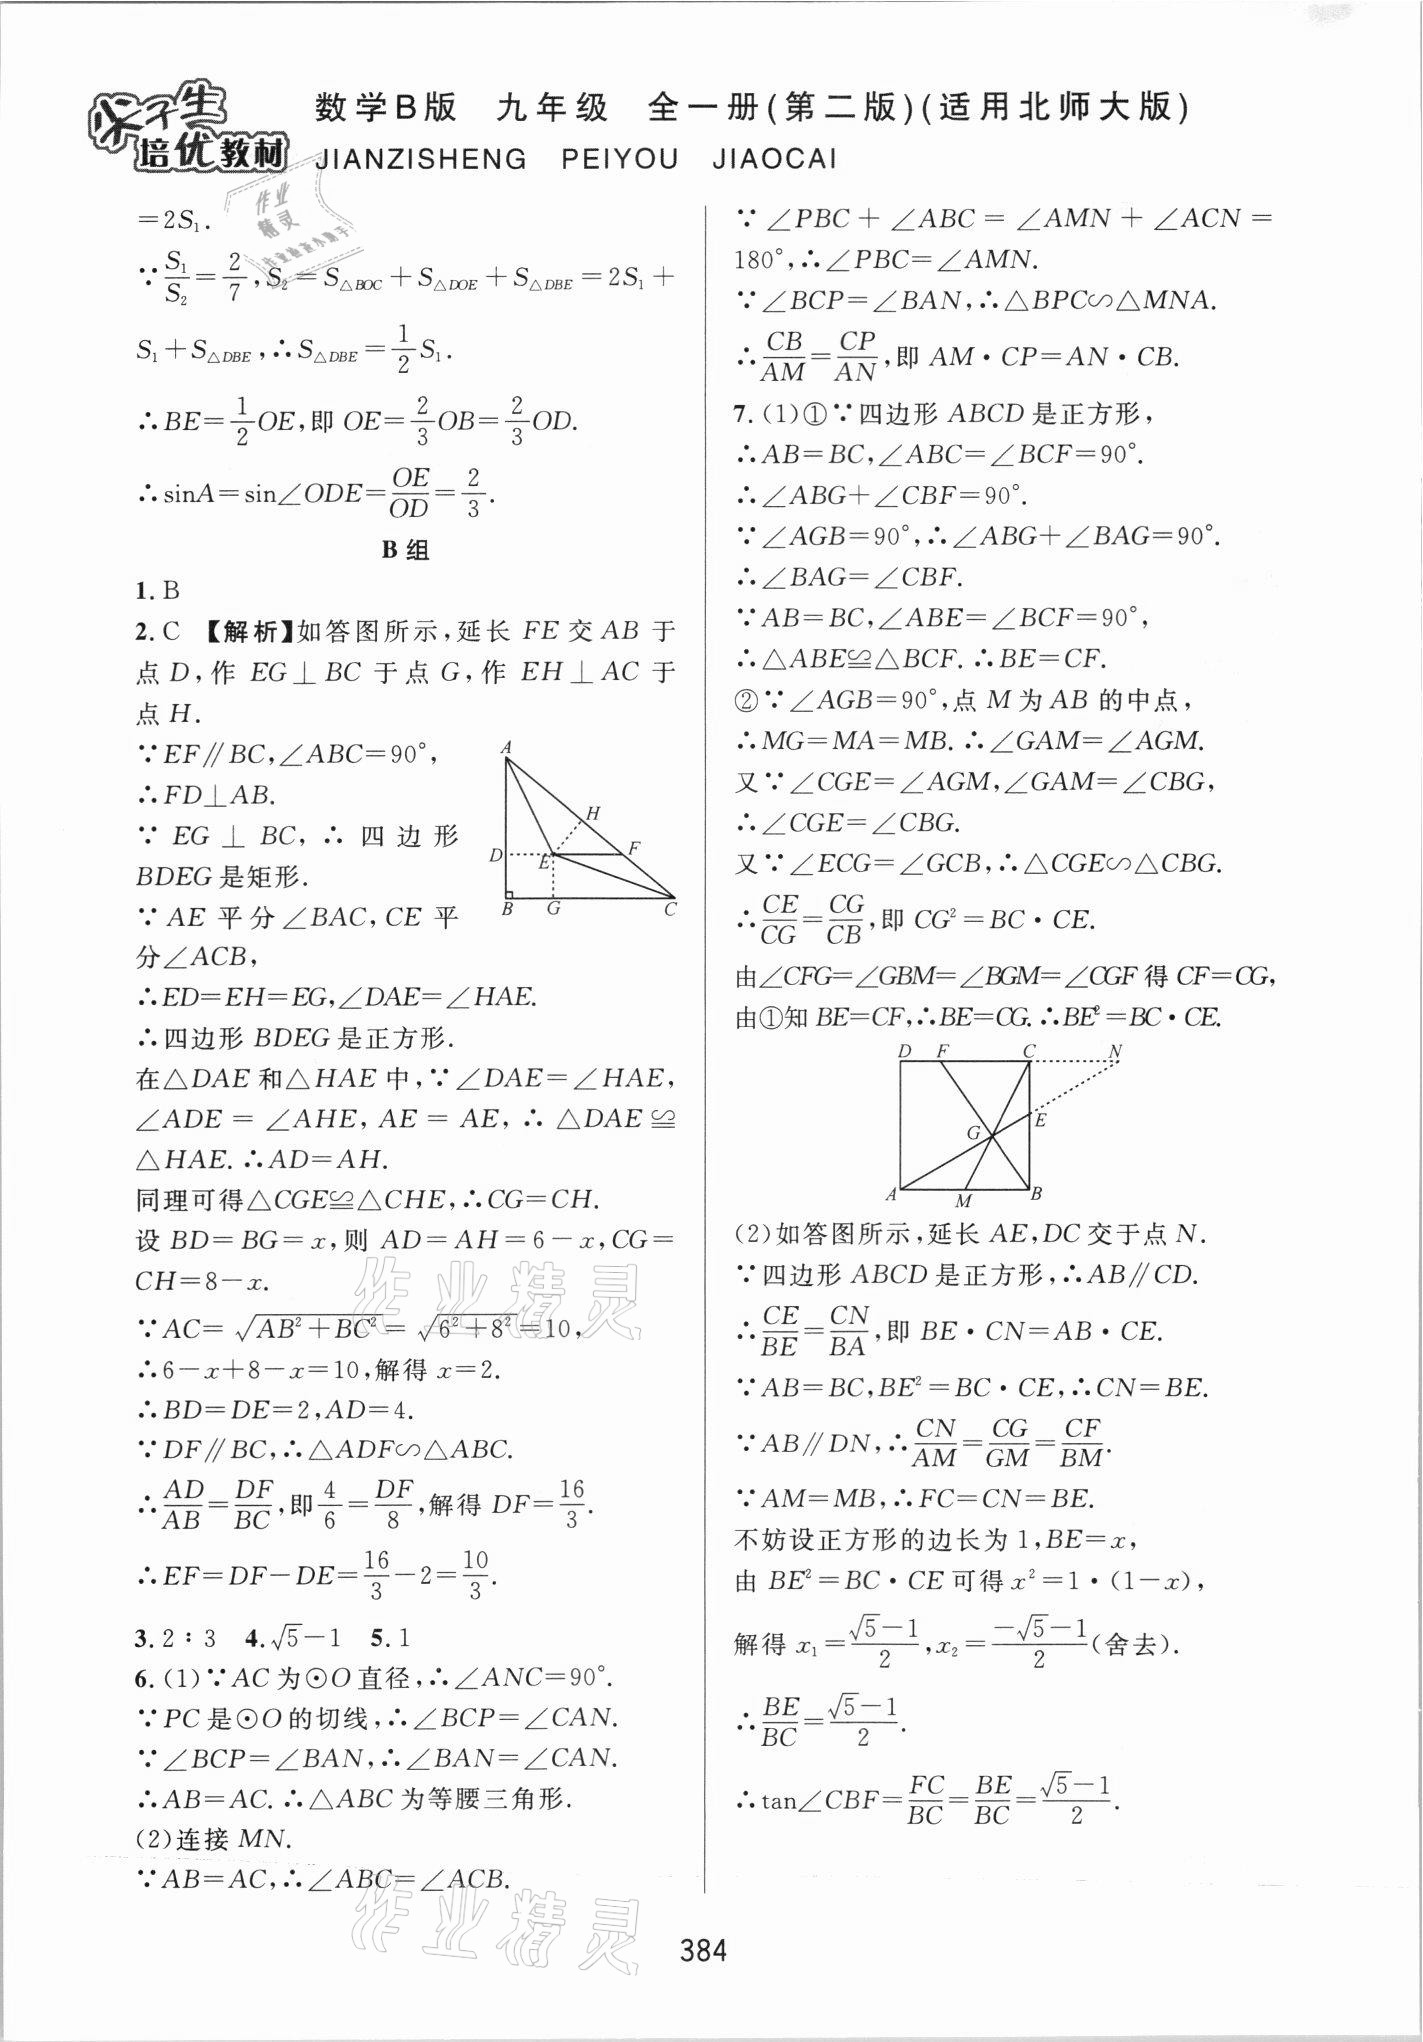 尖子生
培优教材
数学B版 九年级 全一册(第二版)(适用北师大版)
JIANZISHENG PEIYOU JIAOCAI
作业
精灵
=2S₁.
∵S₁/S₂=2/7,S₂=S△BOC+S△DOE+S△DBE=2S₁+
S₁+S△DBE,∴S△DBE=1/2S₁.
∴BE=1/2OE,即OE=2/3OB=2/3OD.
∴sinA=sin∠ODE=OE/OD=2/3.
B组
1.B
2.C 【解析】如答图所示,延长FE交AB于
点D,作EG⊥BC于点G,作EH⊥AC于
点H.
∵EF∥BC,∠ABC=90°,
∴FD⊥AB.
∵EG⊥BC,∴四边形
BDEG是矩形.
∵AE平分∠BAC,CE平
分∠ACB,
A
H
D
E
F
B
G
C
∴ED=EH=EG,∠DAE=∠HAE.
∴四边形BDEG是正方形.
在△DAE和△HAE中,∵∠DAE=∠HAE,
∠ADE=∠AHE,AE=AE,∴△DAE≌
△HAE.∴AD=AH.
同理可得△CGE≌△CHE,∴CG=CH.
设BD=BG=x,则AD=AH=6-x,CG=
CH=8-x.
∵AC=√(AB²+BC²)=√(6²+8²)=10,
∴6-x+8-x=10,解得x=2.
∴BD=DE=2,AD=4.
∵DF∥BC,∴△ADF∽△ABC.
∴AD/AB=DF/BC,即4/6=DF/8,解得DF=16/3.
∴EF=DF-DE=16/3-2=10/3.
3.2∶3 4.√5-1 5.1
6.(1)∵AC为⊙O直径,∴∠ANC=90°.
∵PC是⊙O的切线,∴∠BCP=∠CAN.
∵∠BCP=∠BAN,∴∠BAN=∠CAN.
∴AB=AC.∴△ABC为等腰三角形.
(2)连接MN.
∵AB=AC,∴∠ABC=∠ACB.
∵∠PBC+∠ABC=∠AMN+∠ACN=
180°,∴∠PBC=∠AMN.
∵∠BCP=∠BAN,∴△BPC∽△MNA.
∴CB/AM=CP/AN,即AM·CP=AN·CB.
7.(1)①∵四边形ABCD是正方形,
∴AB=BC,∠ABC=∠BCF=90°.
∴∠ABG+∠CBF=90°.
∵∠AGB=90°,∴∠ABG+∠BAG=90°.
∴∠BAG=∠CBF.
∵AB=BC,∠ABE=∠BCF=90°,
∴△ABE≌△BCF.∴BE=CF.
②∵∠AGB=90°,点M为AB的中点,
∴MG=MA=MB.∴∠GAM=∠AGM.
又∵∠CGE=∠AGM,∠GAM=∠CBG,
∴∠CGE=∠CBG.
又∵∠ECG=∠GCB,∴△CGE∽△CBG.
∴CE/CG=CG/CB,即CG²=BC·CE.
由∠CFG=∠GBM=∠BGM=∠CGF得CF=CG,
由①知BE=CF,∴BE=CG.∴BE²=BC·CE.
D
F
C
N
E
G
A
M
B
(2)如答图所示,延长AE,DC交于点N.
∵四边形ABCD是正方形,∴AB∥CD.
∴CE/BE=CN/BA,即BE·CN=AB·CE.
∵AB=BC,BE²=BC·CE,∴CN=BE.
∵AB∥DN,∴CN/AM=CG/GM=CF/BM.
∵AM=MB,∴FC=CN=BE.
不妨设正方形的边长为1,BE=x,
由BE²=BC·CE可得x²=1·(1-x),
解得x₁=(√5-1)/2,x₂=(-√5-1)/2(舍去).
∴BE/BC=(√5-1)/2.
∴tan∠CBF=FC/BC=BE/BC=(√5-1)/2.
作业精灵
作业精灵
384